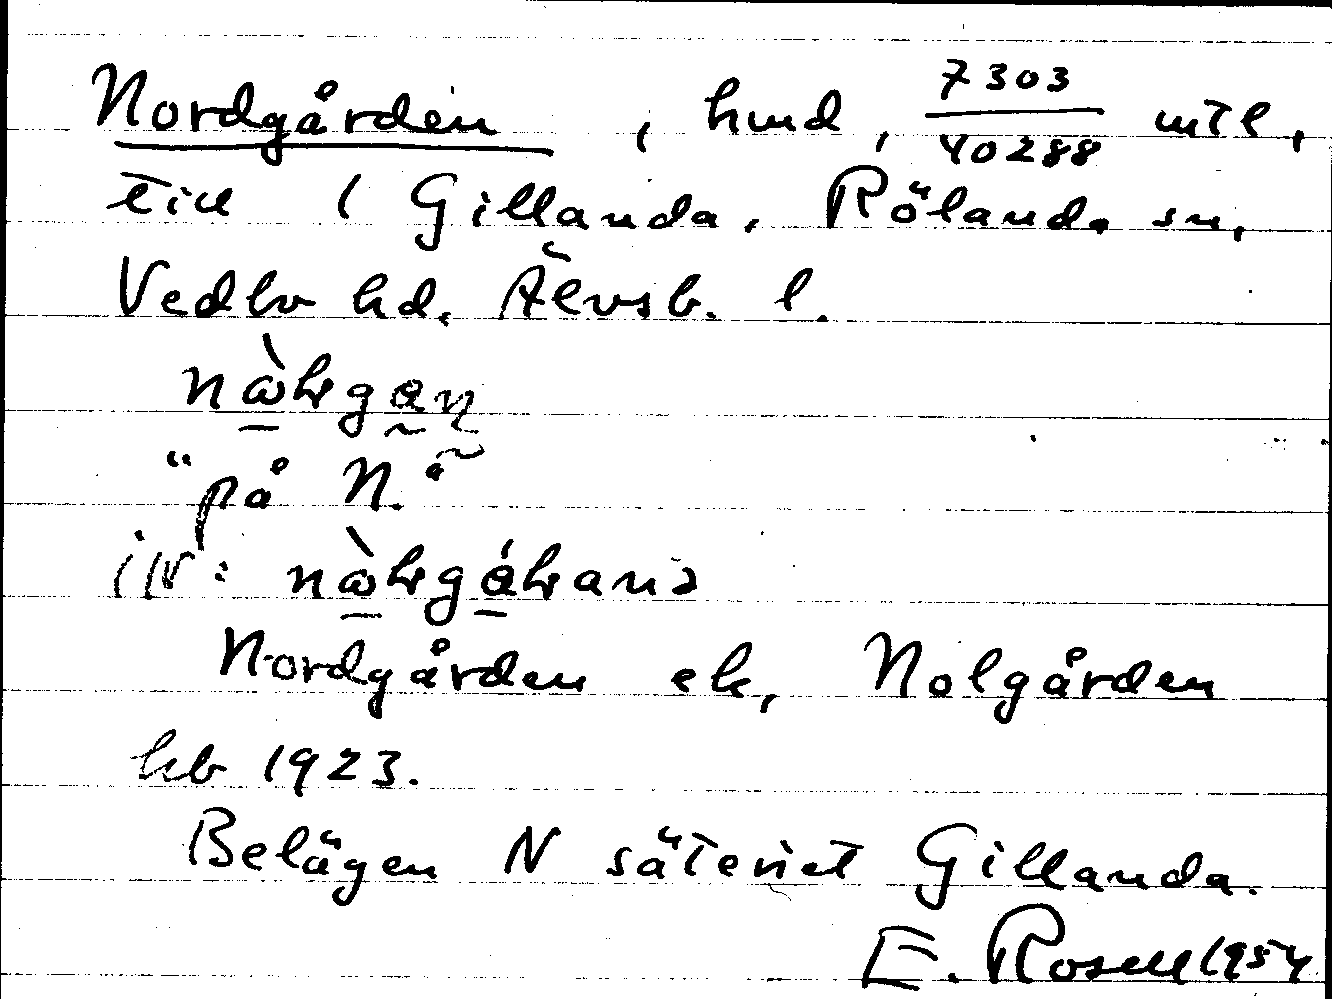 Nordgården, hmd, 7303/40288 mtl,
till 1 Gillanda. Rölanda sn,
Vedbo hd. Älvsb. l.
"på N."
inv:
Nordgården ek, Nolgården
hb 1923.
Belägen N säteriet Gillanda.
E. Rosell 1954